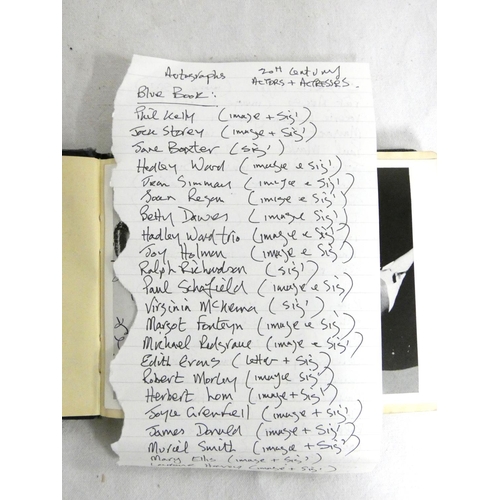 Autographs 20TH Century
ACTORS + ACTRESSES.
Blue Book:
Phil Kelly (image + Sig')
Jack Storey (image + Sig')
Jane Baxter (Sig')
Hedley Ward (image e Sig')
Jean Simmons (image e Sig')
Joan Regan (image e Sig')
Betty Dawes (image e Sig')
Hadley Ward trio (image e Sig')
Joy Holman (image e Sig')
Ralph Richardson (Sig')
Paul Schofield (image e Sig')
Virginia McKenna (Sig')
Margot Fonteyn (image e Sig')
Michael Redgrave (image e Sig')
Edith Evans (letter + Sig')
Robert Morley (image e Sig')
Herbert Lom (image + Sig')
Joyce Grenfell (image + Sig')
James Donald (image + Sig')
Muriel Smith (image + Sig')
Mary Ellis (image + Sig')
(image + Sig')